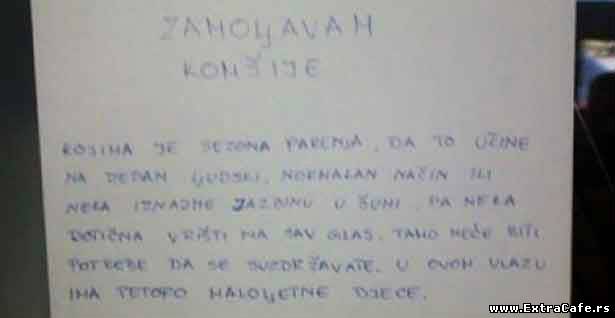 ZAMOLJAVAM
KOMŠIJE
KOJIMA JE SEZONA PARENJA, DA TO UČINE
NA JEDAN LJUDSKI, NORMALAN NAČIN ILI
NEKA IZNAJME JAZBINU U ŠUMI, PA NEKA
DOTIČNA VRIŠTI NA SAV GLAS. TAMO NEĆE BITI
POTREBE DA SE SUZDRŽAVATE. U OVOM ULAZU
IMA PETORO MALOLJETNE DJECE.
www.ExtraCafe.rs